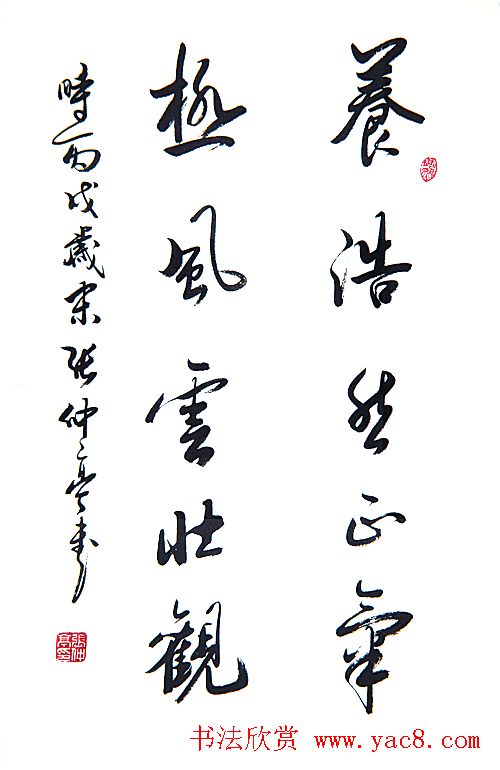 養浩然正氣
極風雲壯觀
時丙戌歲末張仲亭書
張仲亭印
书法欣赏 www.yac8.com